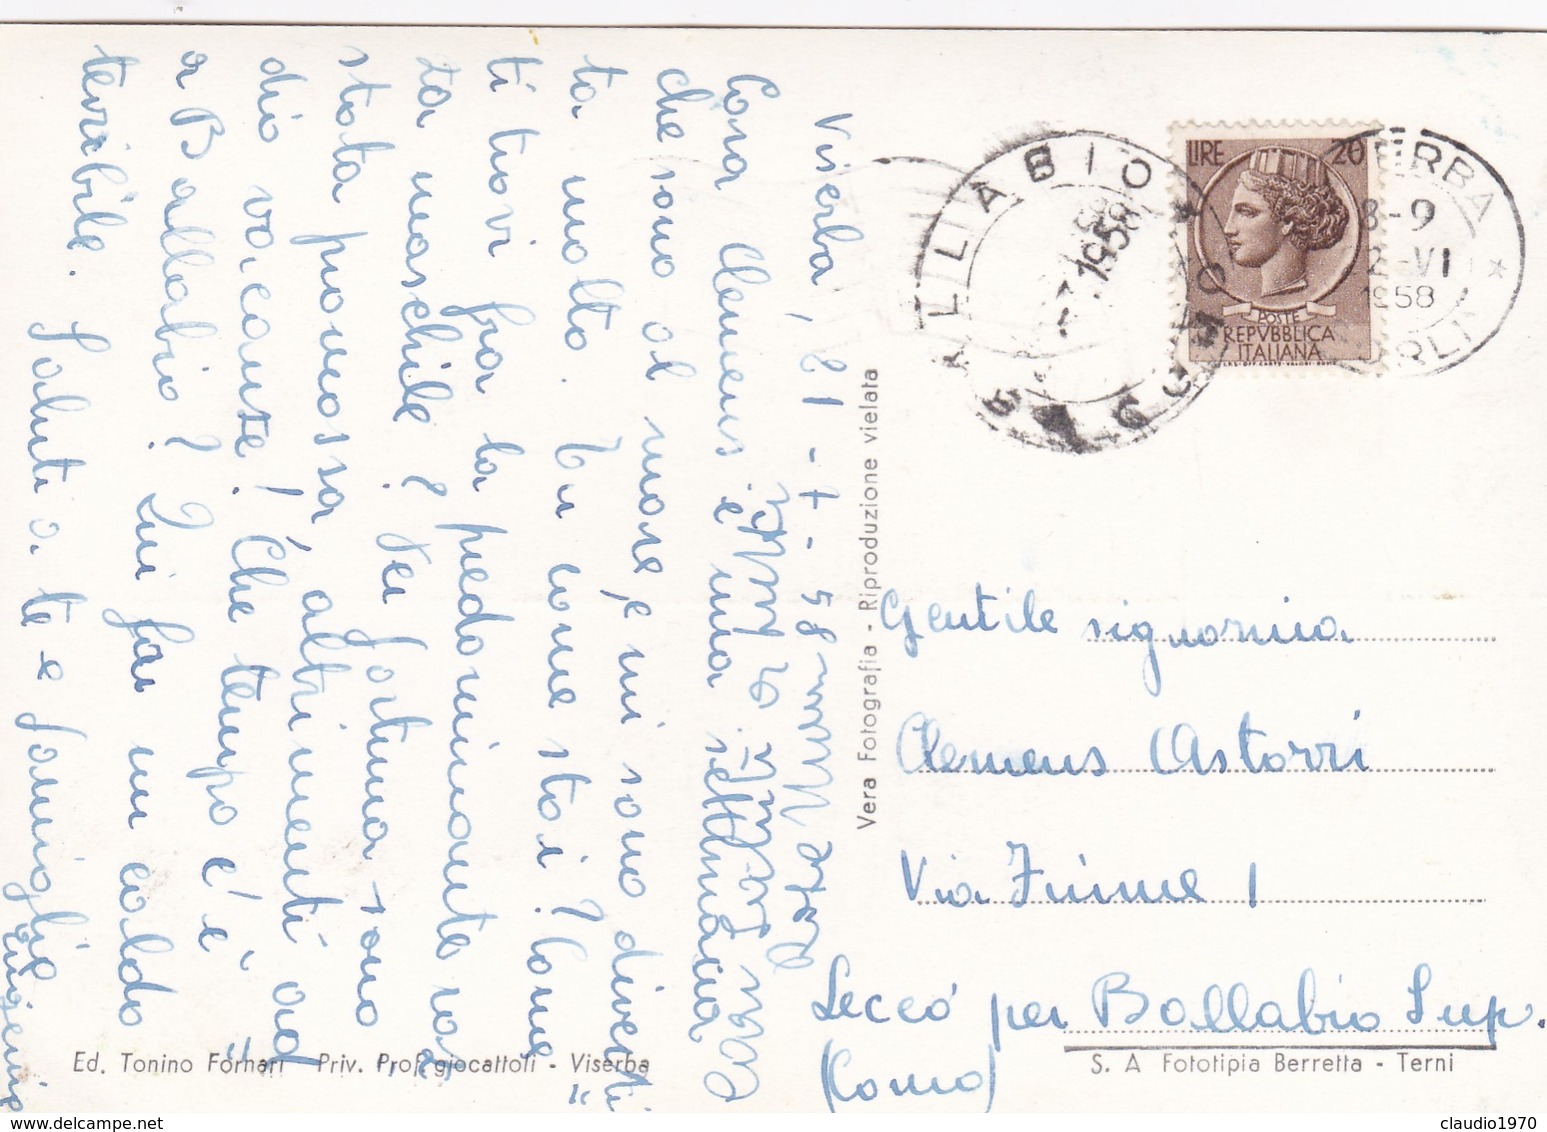 Viserba, 21-7-58
Cara Clemens, è una settimana
che sono al mare e mi sono diverti
ta molto. Tu come stai? Come
ti trovi fra la predominante raz
za maschile? Per fortuna sono
stata promossa, altrimenti ad
dio vacanze! Che tempo c'è
a Ballabio? Qui fa un caldo
terribile. Saluti a te e famiglia
Vera Fotografia - Riproduzione vietata
Ed. Tonino Fornari Priv. Prof. giocattoli - Viserba
LIRE 20
POSTE
REPVBBLICA
ITALIANA
BALLABIO
1958
ERBA
8-9
2-VI
1958
Gentile signorina
Clemens Astorri
Via Fiume 1
Lecco per Ballabio Sup.
(Como)
S. A Fototipia Berretta - Terni
claudio1970